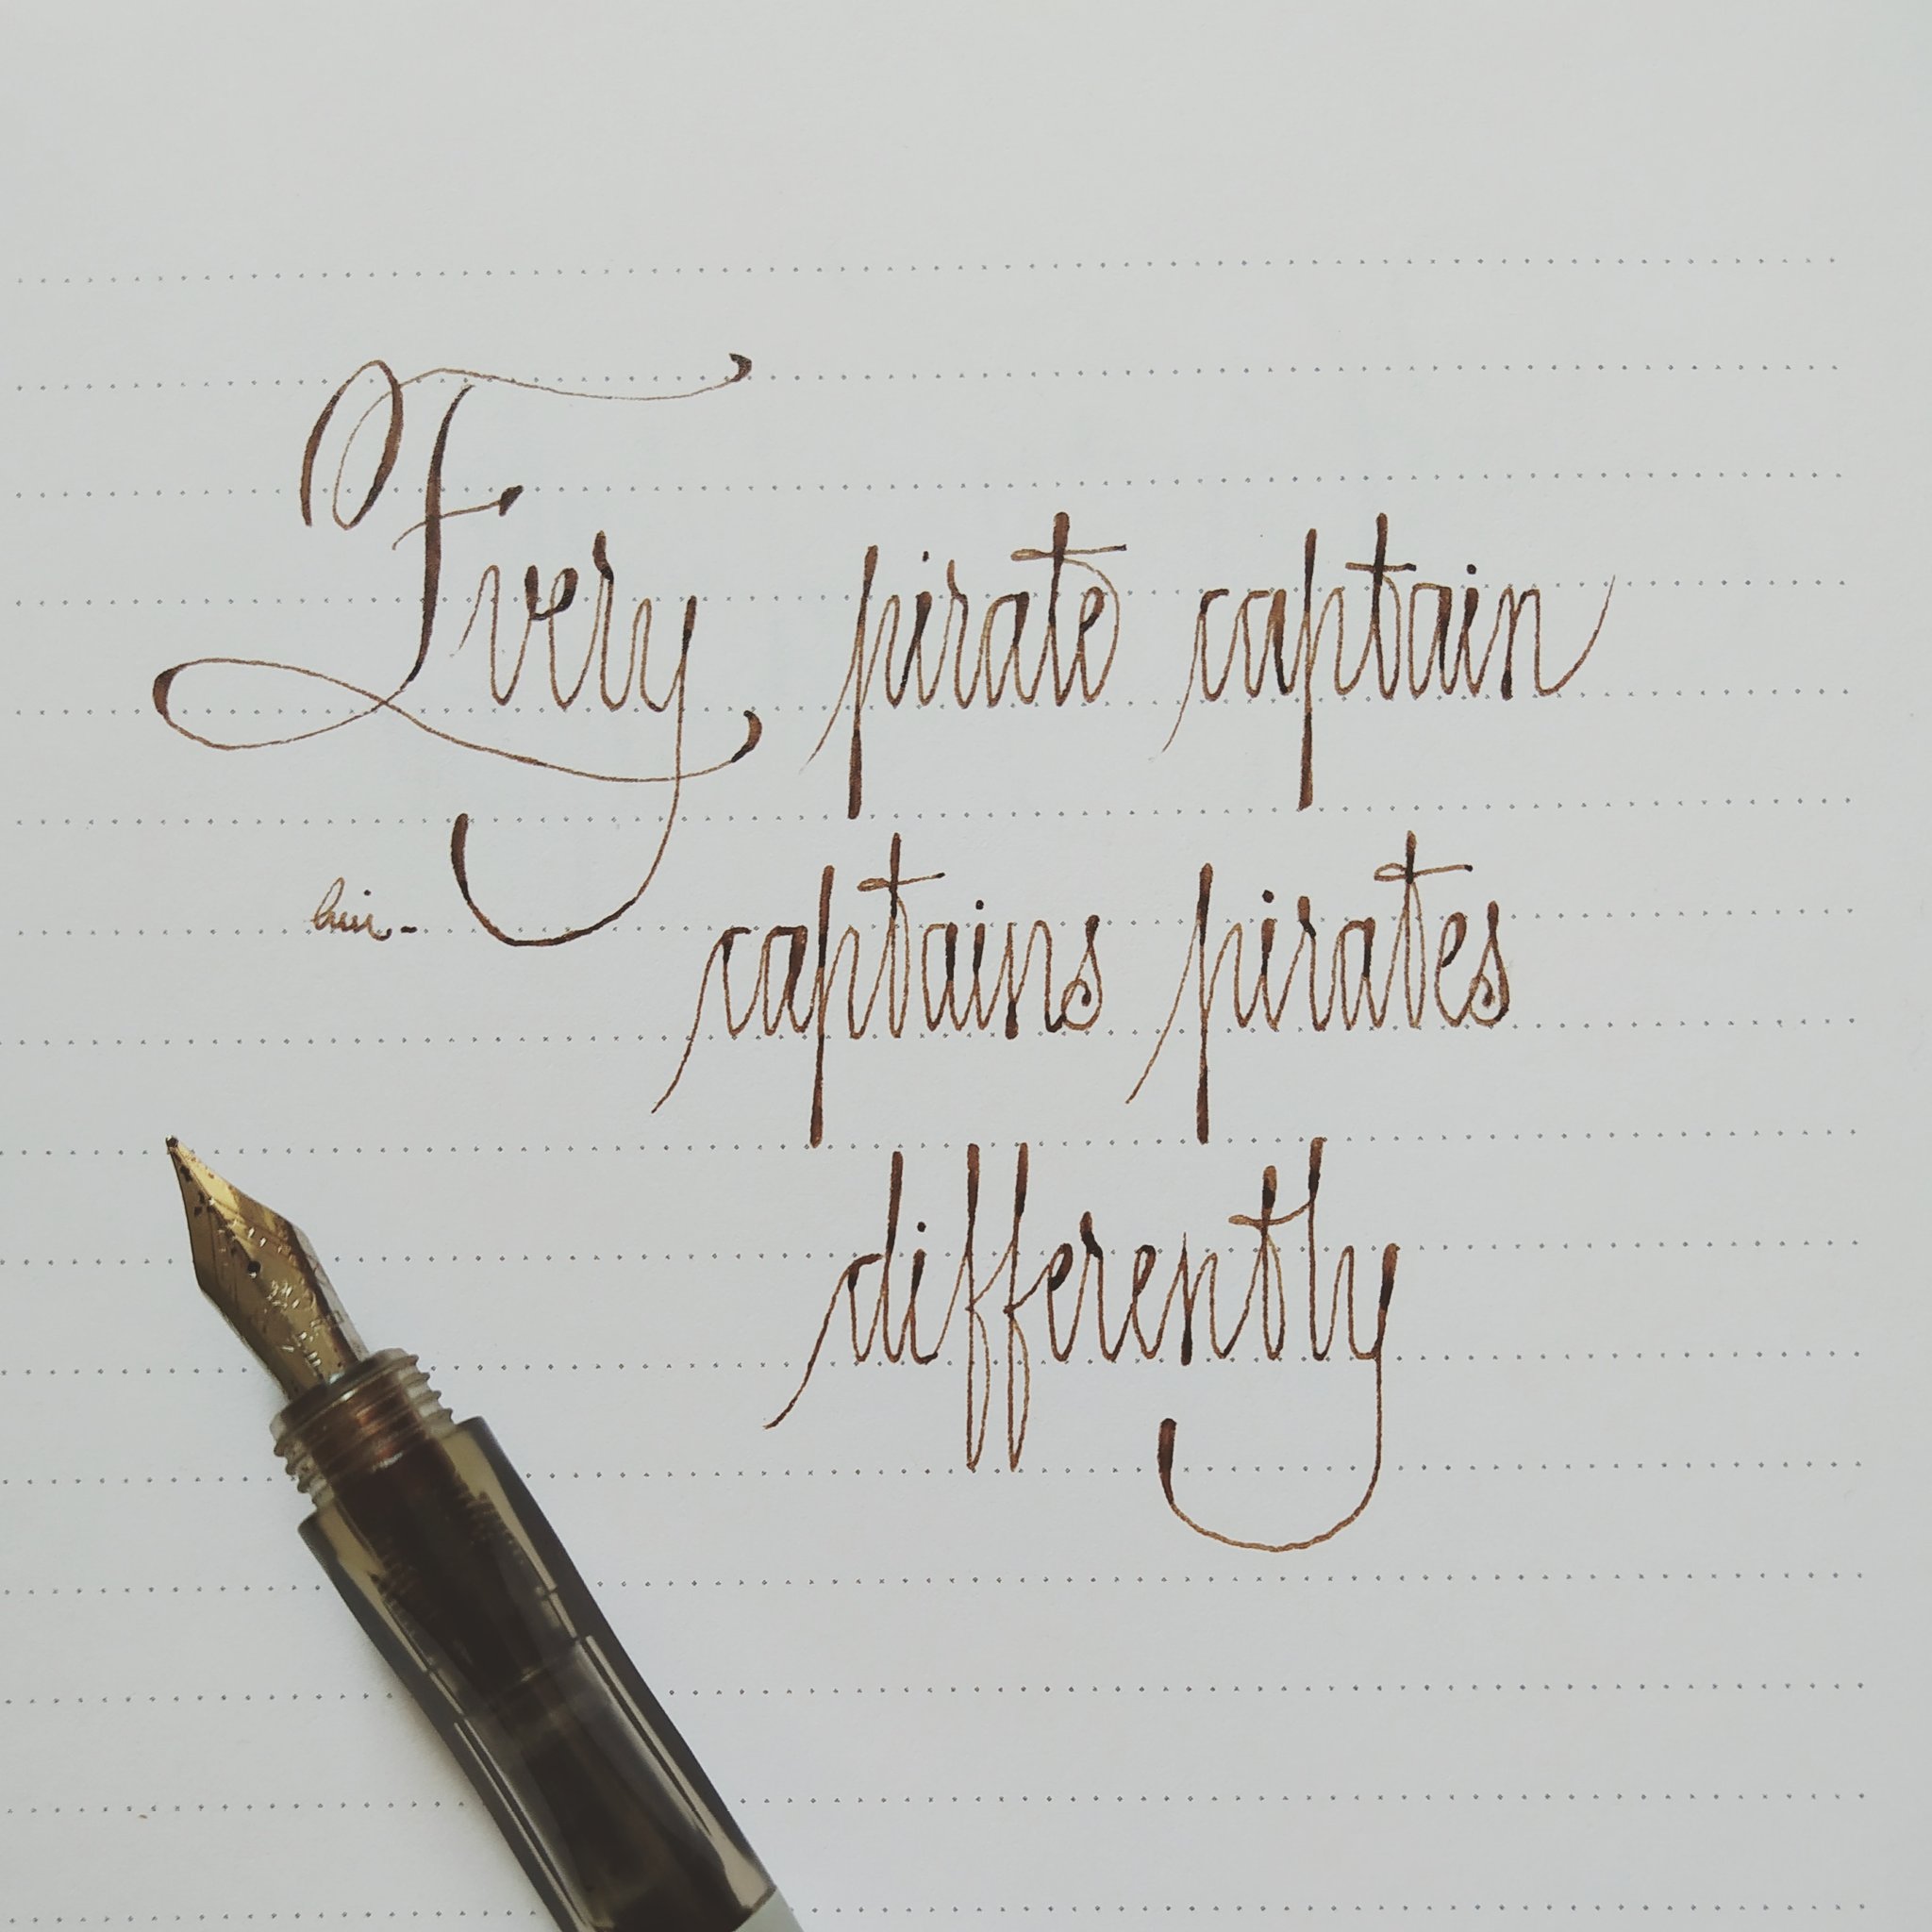 Every pirate captain
captains pirates
differently